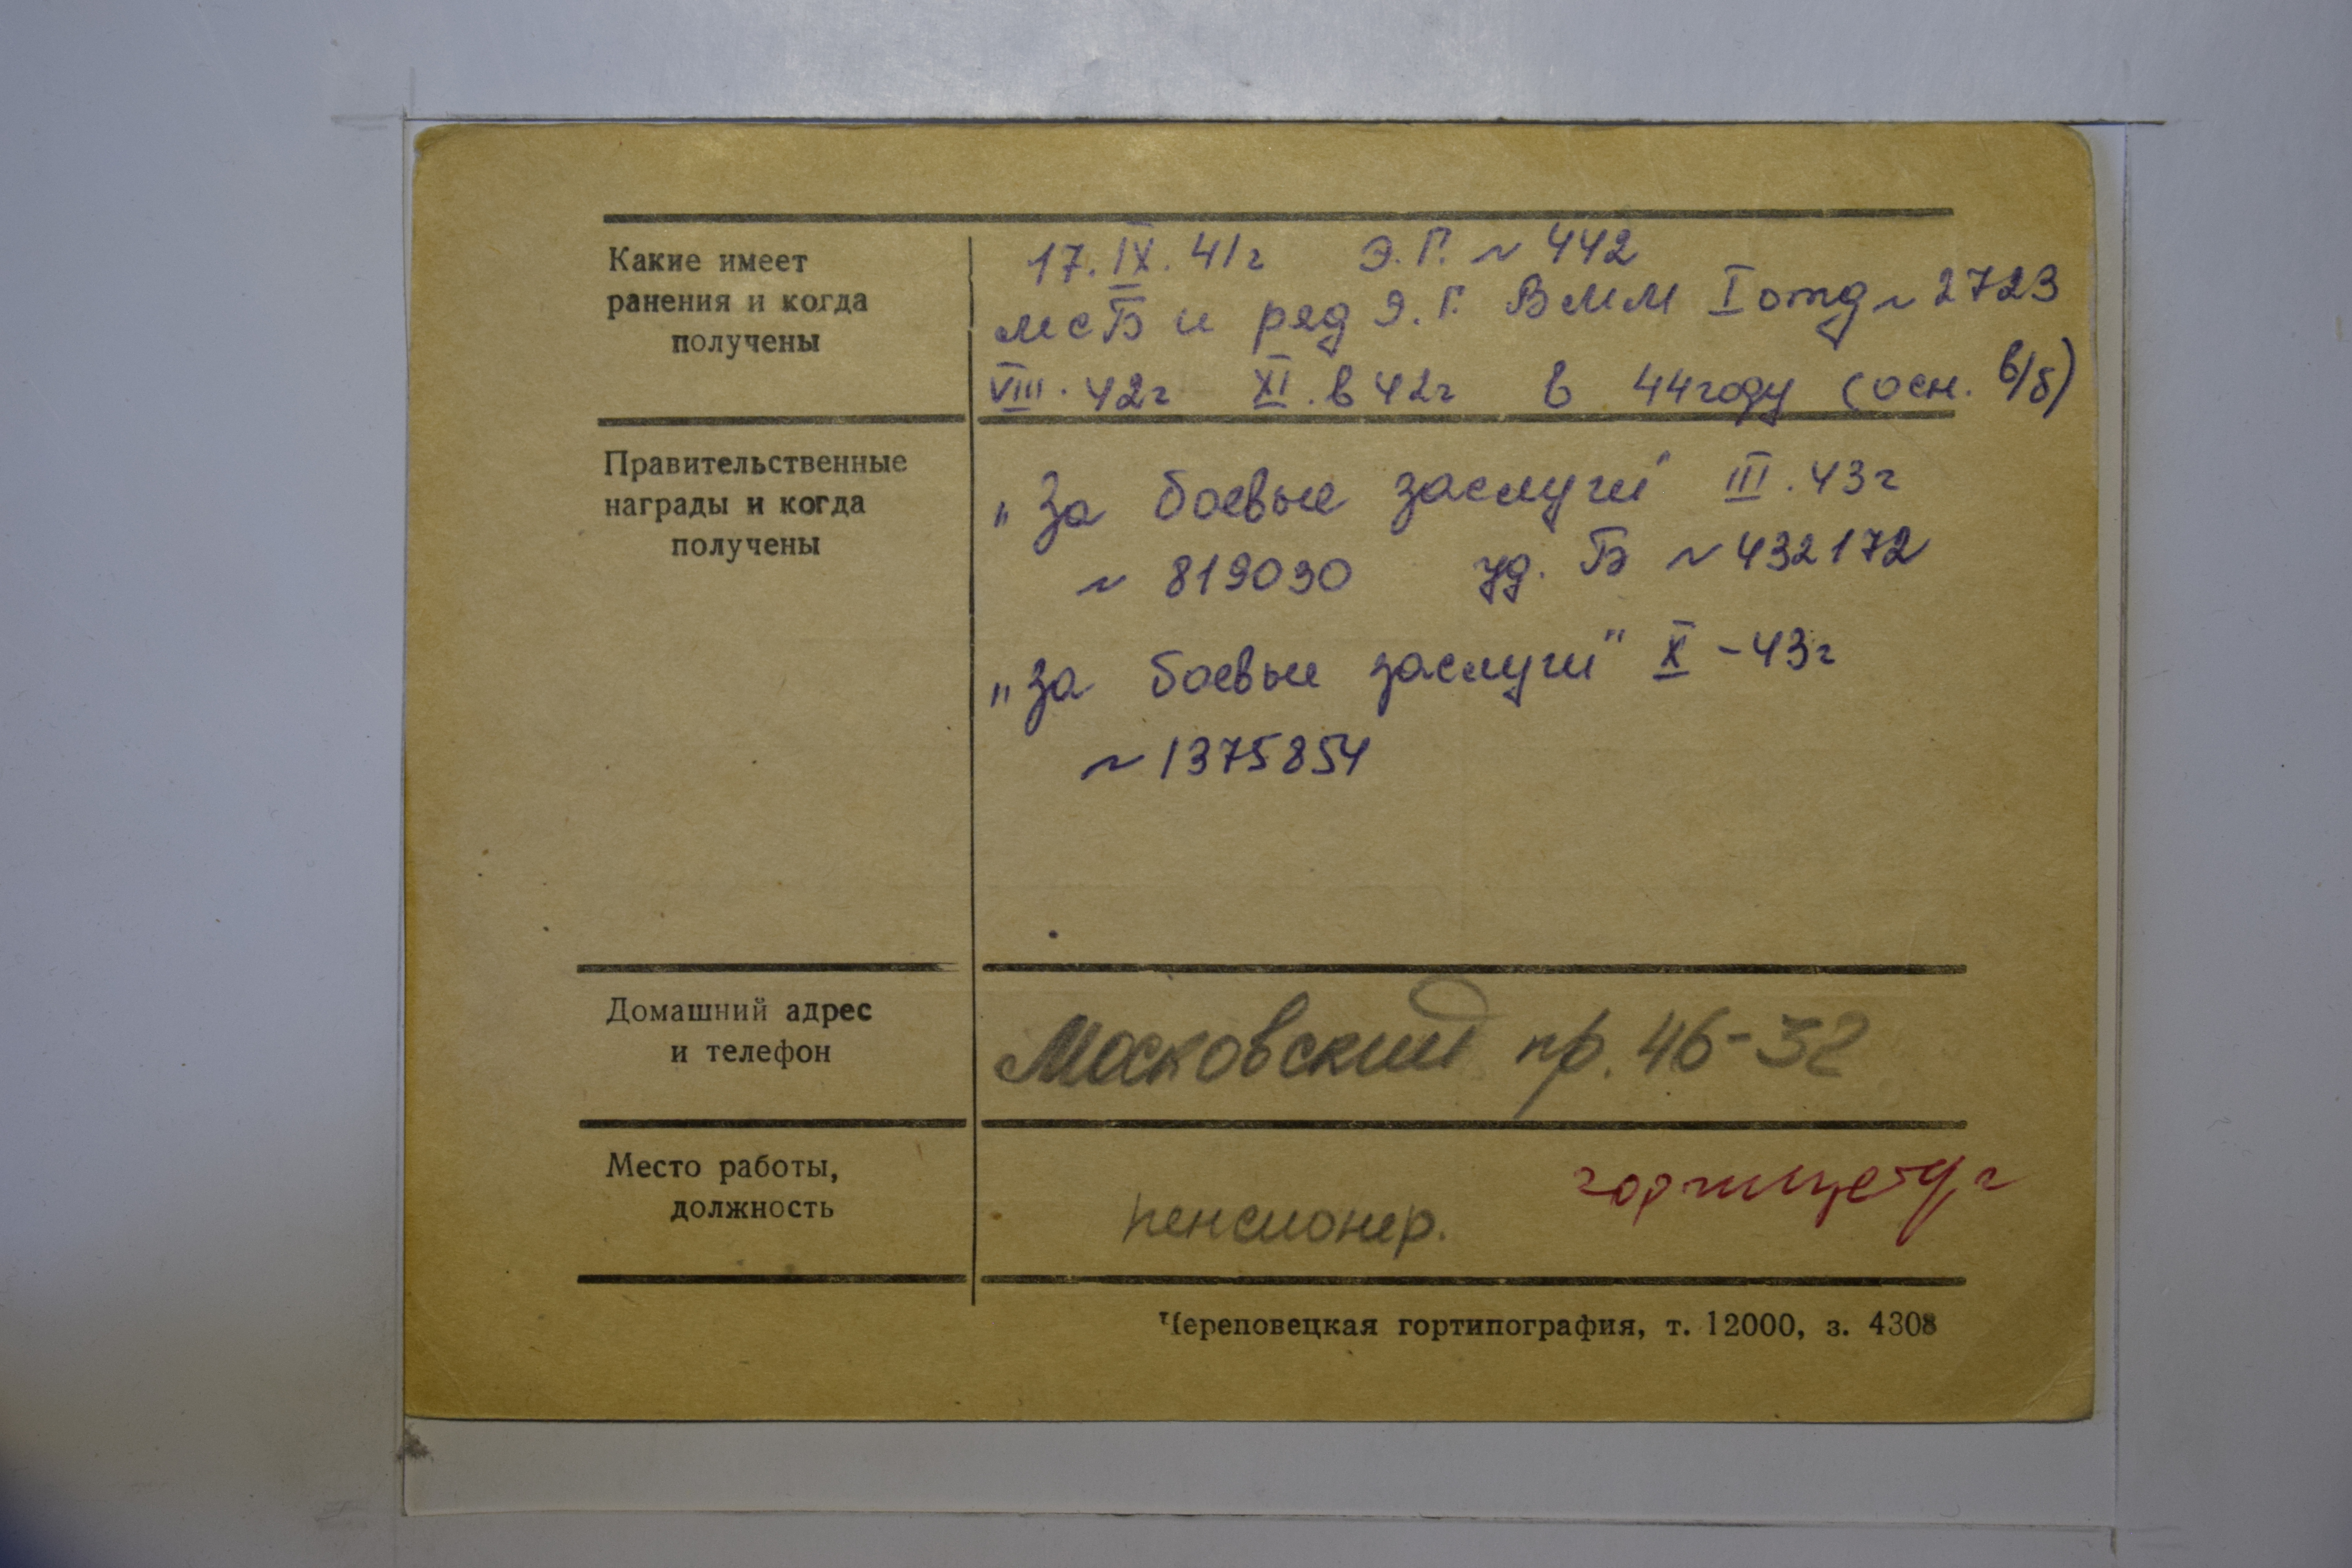 Какие имеет
ранения и когда
получены
17. IX. 41г Э.Г. ~ 442
мсБ и ряд Э.Г. ВММ I отд ~ 2723
VIII. 42г XI. в 42г в 44 году (осн. в/б)
Правительственные
награды и когда
получены
„За боевые заслуги" III. 43г
~ 819030 уд. Б ~ 432172
„За боевые заслуги" X - 43г
~ 1375854
Домашний адрес
и телефон
Московский пр. 46-32
Место работы,
должность
пенсионер.
Череповецкая гортипография, т. 12000, з. 4308